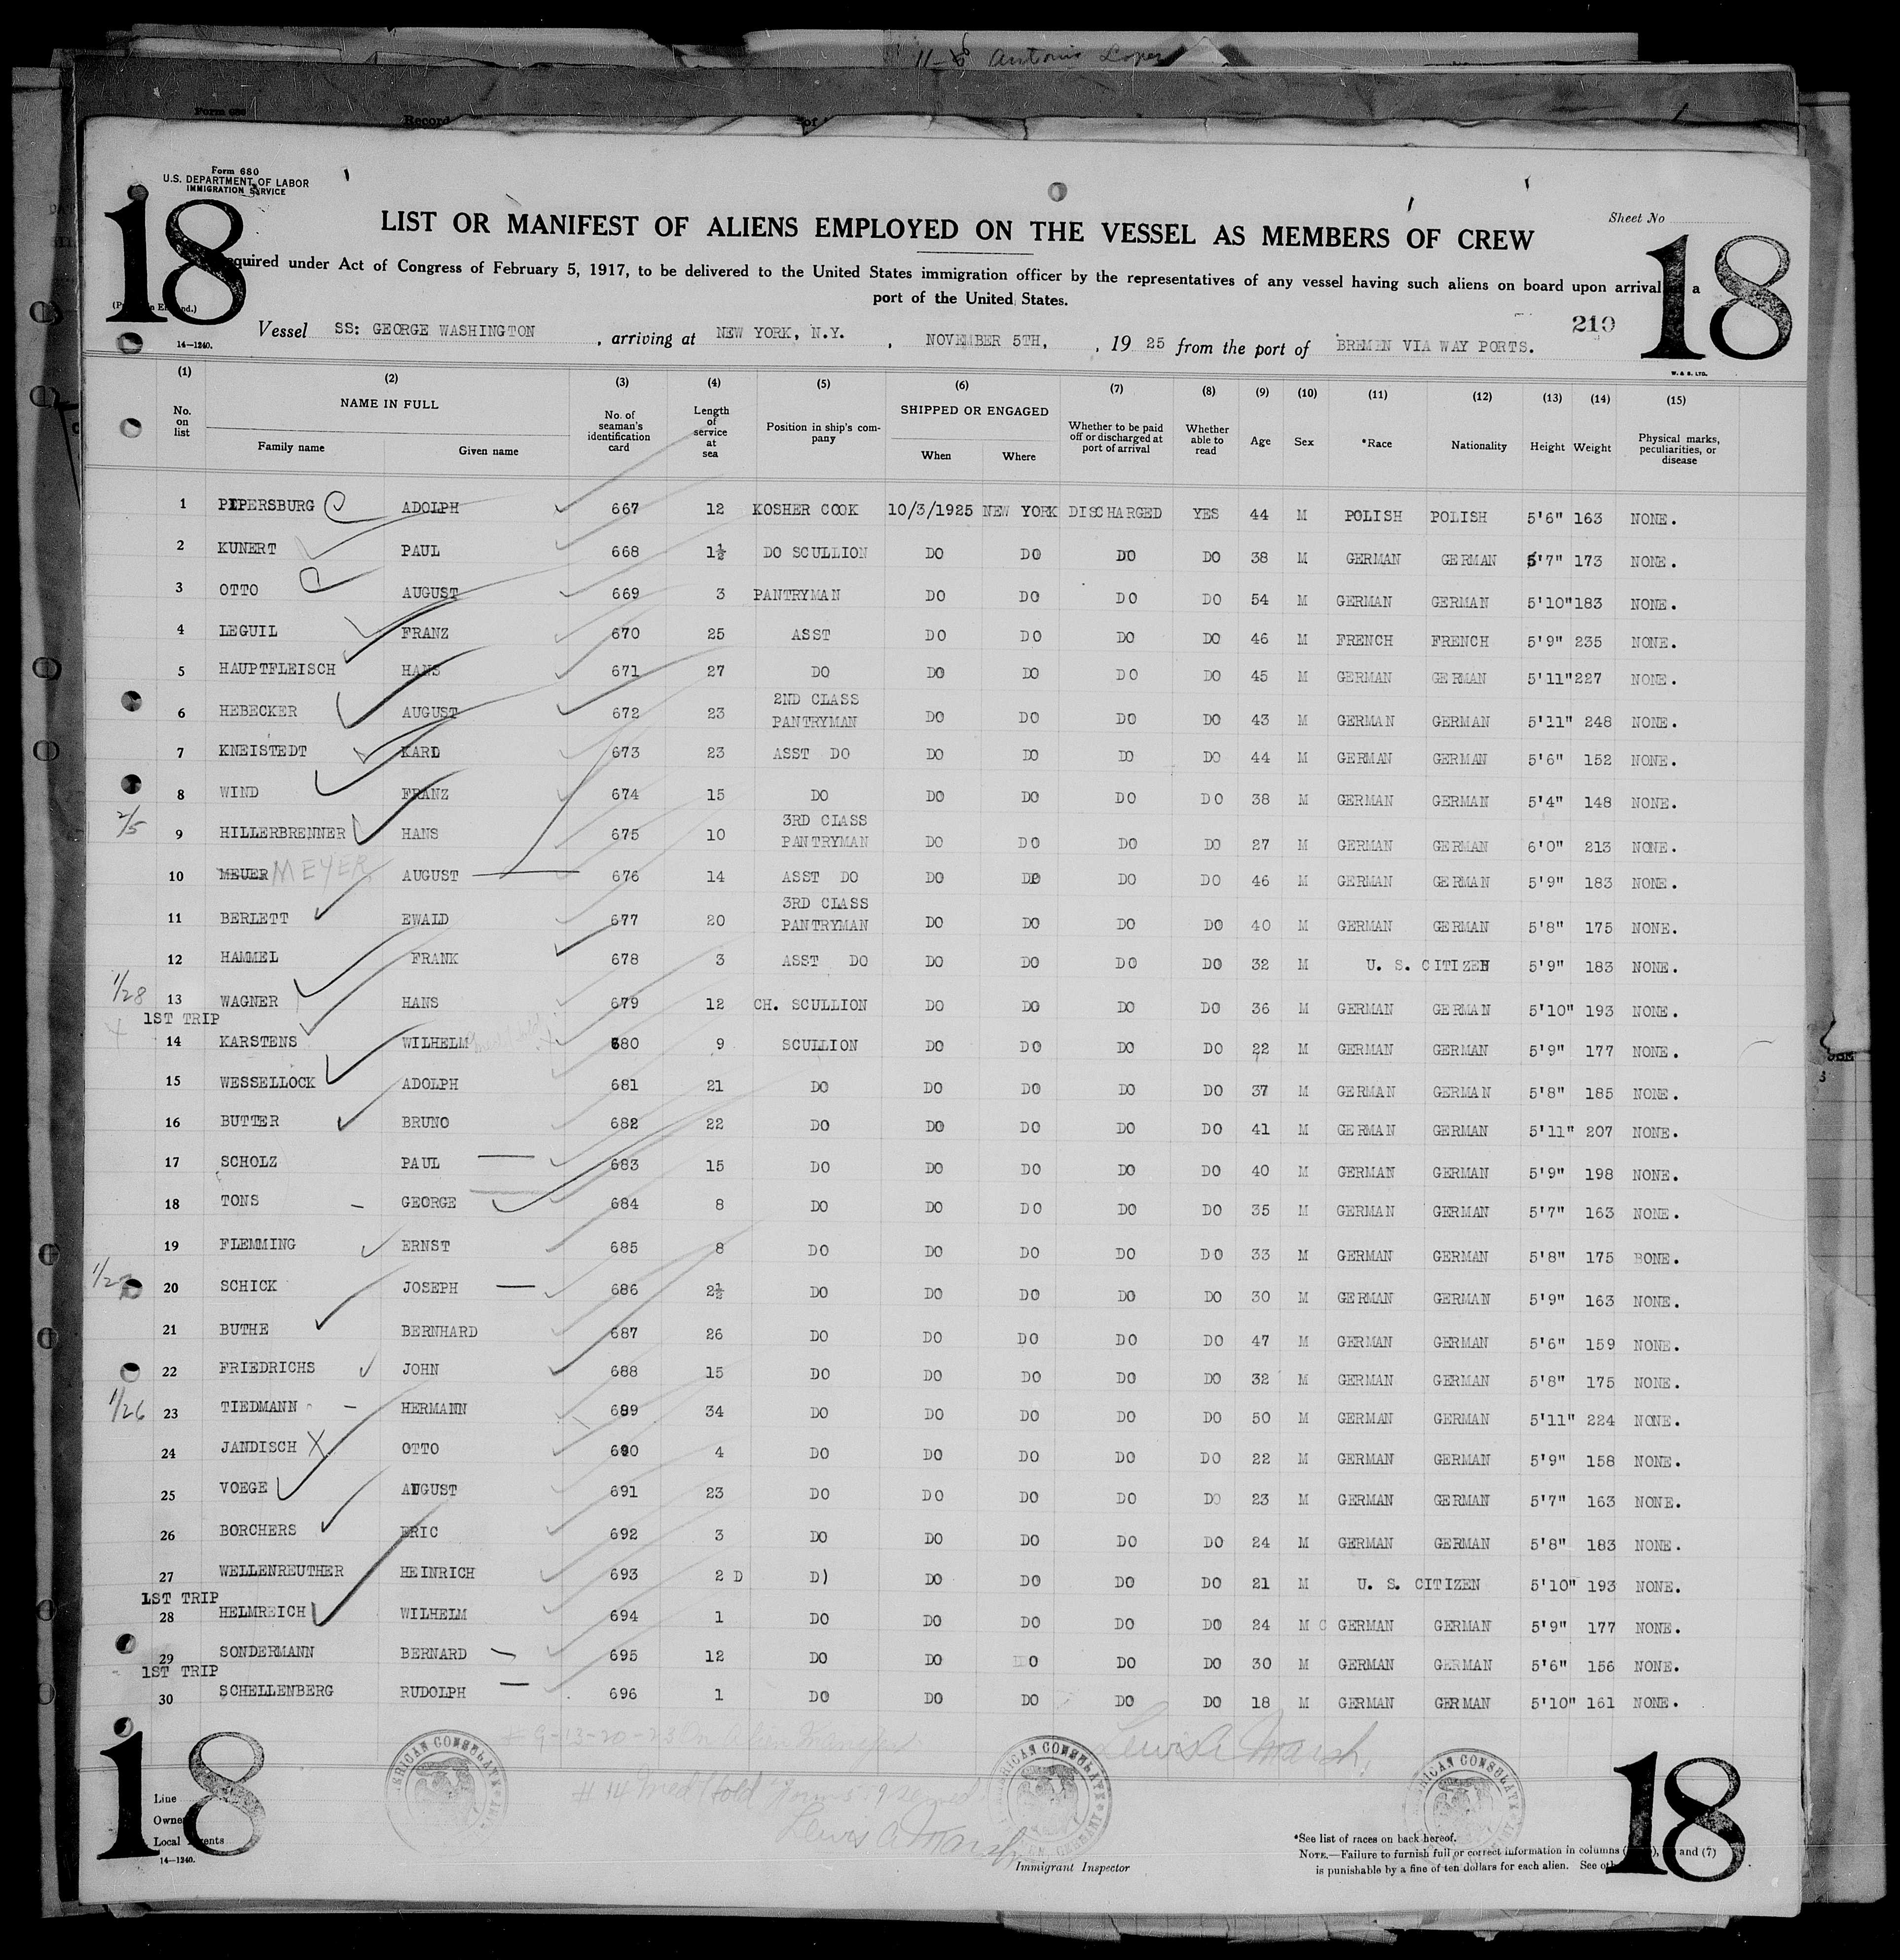 11-8 Antonio Lopez
Form 680
Record of
Form 680
U.S. DEPARTMENT OF LABOR
IMMIGRATION SERVICE
18
18
Sheet No
LIST OR MANIFEST OF ALIENS EMPLOYED ON THE VESSEL AS MEMBERS OF CREW
Required under Act of Congress of February 5, 1917, to be delivered to the United States immigration officer by the representatives of any vessel having such aliens on board upon arrival at a
port of the United States.
210
14—1240.
Vessel SS: GEORGE WASHINGTON , arriving at NEW YORK, N.Y. , NOVEMBER 5TH, , 19 25 from the port of BREMEN VIA WAY PORTS.
W. & S. LTD.
(1) (2) (3) (4) (5) (6) (7) (8) (9) (10) (11) (12) (13) (14) (15)
No. on list NAME IN FULL Family name Given name No. of seaman's identification card Length of service at sea Position in ship's company SHIPPED OR ENGAGED When Where Whether to be paid off or discharged at port of arrival Whether able to read Age Sex *Race Nationality Height Weight Physical marks, peculiarities, or disease
1 PIPERSBURG ADOLPH 667 12 KOSHER COOK 10/3/1925 NEW YORK DISCHARGED YES 44 M POLISH POLISH 5'6" 163 NONE.
2 KUNERT PAUL 668 1½ DO SCULLION DO DO DO DO 38 M GERMAN GERMAN 5'7" 173 NONE.
3 OTTO AUGUST 669 3 PANTRYMAN DO DO DO DO 54 M GERMAN GERMAN 5'10" 183 NONE.
4 LEGUIL FRANZ 670 25 ASST DO DO DO DO 46 M FRENCH FRENCH 5'9" 235 NONE.
5 HAUPTFLEISCH HANS 671 27 DO DO DO DO DO 45 M GERMAN GERMAN 5'11" 227 NONE.
6 HEBECKER AUGUST 672 23 2ND CLASS PANTRYMAN DO DO DO DO 43 M GERMAN GERMAN 5'11" 248 NONE.
7 KNEISTEDT KARL 673 23 ASST DO DO DO DO DO 44 M GERMAN GERMAN 5'6" 152 NONE.
8 WIND FRANZ 674 15 DO DO DO DO DO 38 M GERMAN GERMAN 5'4" 148 NONE.
2/5 9 HILLERBRENNER HANS 675 10 3RD CLASS PANTRYMAN DO DO DO DO 27 M GERMAN GERMAN 6'0" 213 NONE.
10 MEUER MEYER AUGUST 676 14 ASST DO DO DO DO DO 46 M GERMAN GERMAN 5'9" 183 NONE.
11 BERLETT EWALD 677 20 3RD CLASS PANTRYMAN DO DO DO DO 40 M GERMAN GERMAN 5'8" 175 NONE.
12 HAMMEL FRANK 678 3 ASST DO DO DO DO DO 32 M U. S. CITIZEN 5'9" 183 NONE.
1/28 13 WAGNER HANS 679 12 CH. SCULLION DO DO DO DO 36 M GERMAN GERMAN 5'10" 193 NONE.
1ST TRIP
14 KARSTENS WILHELM 680 9 SCULLION DO DO DO DO 22 M GERMAN GERMAN 5'9" 177 NONE.
15 WESSELLOCK ADOLPH 681 21 DO DO DO DO DO 37 M GERMAN GERMAN 5'8" 185 NONE.
16 BUTTER BRUNO 682 22 DO DO DO DO DO 41 M GERMAN GERMAN 5'11" 207 NONE.
17 SCHOLZ PAUL 683 15 DO DO DO DO DO 40 M GERMAN GERMAN 5'9" 198 NONE.
18 TONS GEORGE 684 8 DO DO DO DO DO 35 M GERMAN GERMAN 5'7" 163 NONE.
19 FLEMMING ERNST 685 8 DO DO DO DO DO 33 M GERMAN GERMAN 5'8" 175 BONE.
20 SCHICK JOSEPH 686 2½ DO DO DO DO DO 30 M GERMAN GERMAN 5'9" 163 NONE.
21 BUTHE BERNHARD 687 26 DO DO DO DO DO 47 M GERMAN GERMAN 5'6" 159 NONE.
22 FRIEDRICHS JOHN 688 15 DO DO DO DO DO 32 M GERMAN GERMAN 5'8" 175 NONE.
1/26 23 TIEDMANN HERMANN 689 34 DO DO DO DO DO 50 M GERMAN GERMAN 5'11" 224 NONE.
24 JANDISCH X OTTO 690 4 DO DO DO DO DO 22 M GERMAN GERMAN 5'9" 158 NONE.
25 VOEGE AUGUST 691 23 DO DO DO DO DO 23 M GERMAN GERMAN 5'7" 163 NONE.
26 BORCHERS ERIC 692 3 DO DO DO DO DO 24 M GERMAN GERMAN 5'8" 183 NONE.
27 WELLENREUTHER HEINRICH 693 2 D D) DO DO DO DO 21 M U. S. CITIZEN 5'10" 193 NONE.
1ST TRIP
28 HELMREICH WILHELM 694 1 DO DO DO DO DO 24 M C GERMAN GERMAN 5'9" 177 NONE.
29 SONDERMANN BERNARD 695 12 DO DO DO DO DO 30 M GERMAN GERMAN 5'6" 156 NONE.
1ST TRIP
30 SCHELLENBERG RUDOLPH 696 1 DO DO DO DO DO 18 M GERMAN GERMAN 5'10" 161 NONE.
# 9-13-20-23
Lewis A Marsh.
AMERICAN CONSULATE
AMERICAN CONSULATE
AMERICAN CONSULATE
# 14 Med Hold
Lewis A Marsh
Immigrant Inspector
18
18
Line
Owner
Local Agents
14—1240.
*See list of races on back hereof.
NOTE.—Failure to furnish full or correct information in columns and (7)
is punishable by a fine of ten dollars for each alien. See